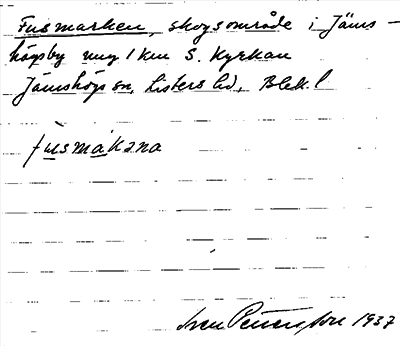 Fusmarken, skogsområde i Jäms-
högsby ung 1 km S. Kyrkan
Jämshögs sn, Listers hd, Blek. l
fusmakana
Sven Petersson 1937